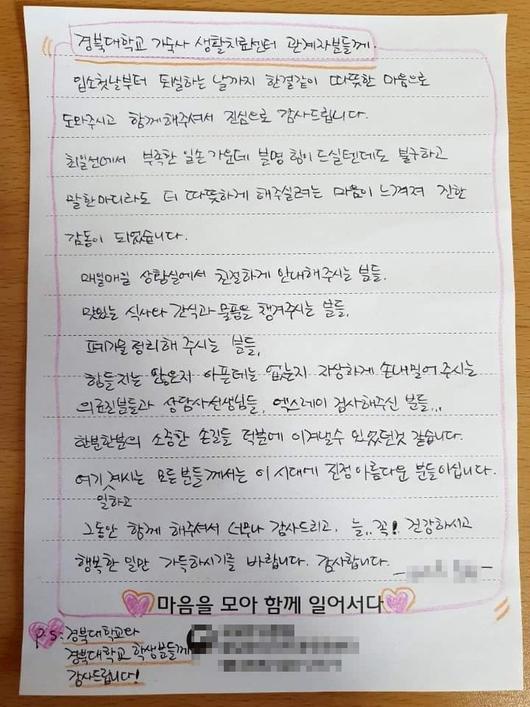 경북대학교 기숙사 생활치료센터 관계자분들께.
입소첫날부터 퇴실하는 날까지 한결같이 따뜻한 마음으로
도와주시고 함께해주셔서 진심으로 감사드립니다.
최일선에서 부족한 일손 가운데 분명 힘이 드실텐데도 불구하고
말 한마디라도 더 따뜻하게 해주실려는 마음이 느껴져 진한
감동이 되었습니다.
매일매일 상황실에서 친절하게 안내해주시는 분들.
맛있는 식사와 간식과 물품을 챙겨주시는 분들,
폐기물정리해 주시는 분들,
힘들지는 않은지 아픈데는 없는지 자상하게 손내밀어 주시는
의료진분들과 상담사선생님들, 엑스레이 검사해주신 분들..
한분한분의 소중한 손길들 덕분에 이겨낼수 있었던것 같습니다.
여기 계시는 모든분들께서는 이 시대에 진정아름다운 분들이십니다.
일하고
그동안 함께 해주셔서 너무나 감사드리고, 늘.. 꼭! 건강하시고
행복한 일만 가득하시기를 바랍니다. 감사합니다.
마음을 모아 함께 일어서다
P.S: 경북대학교와
경북대학교 학생분들께
감사드립니다!